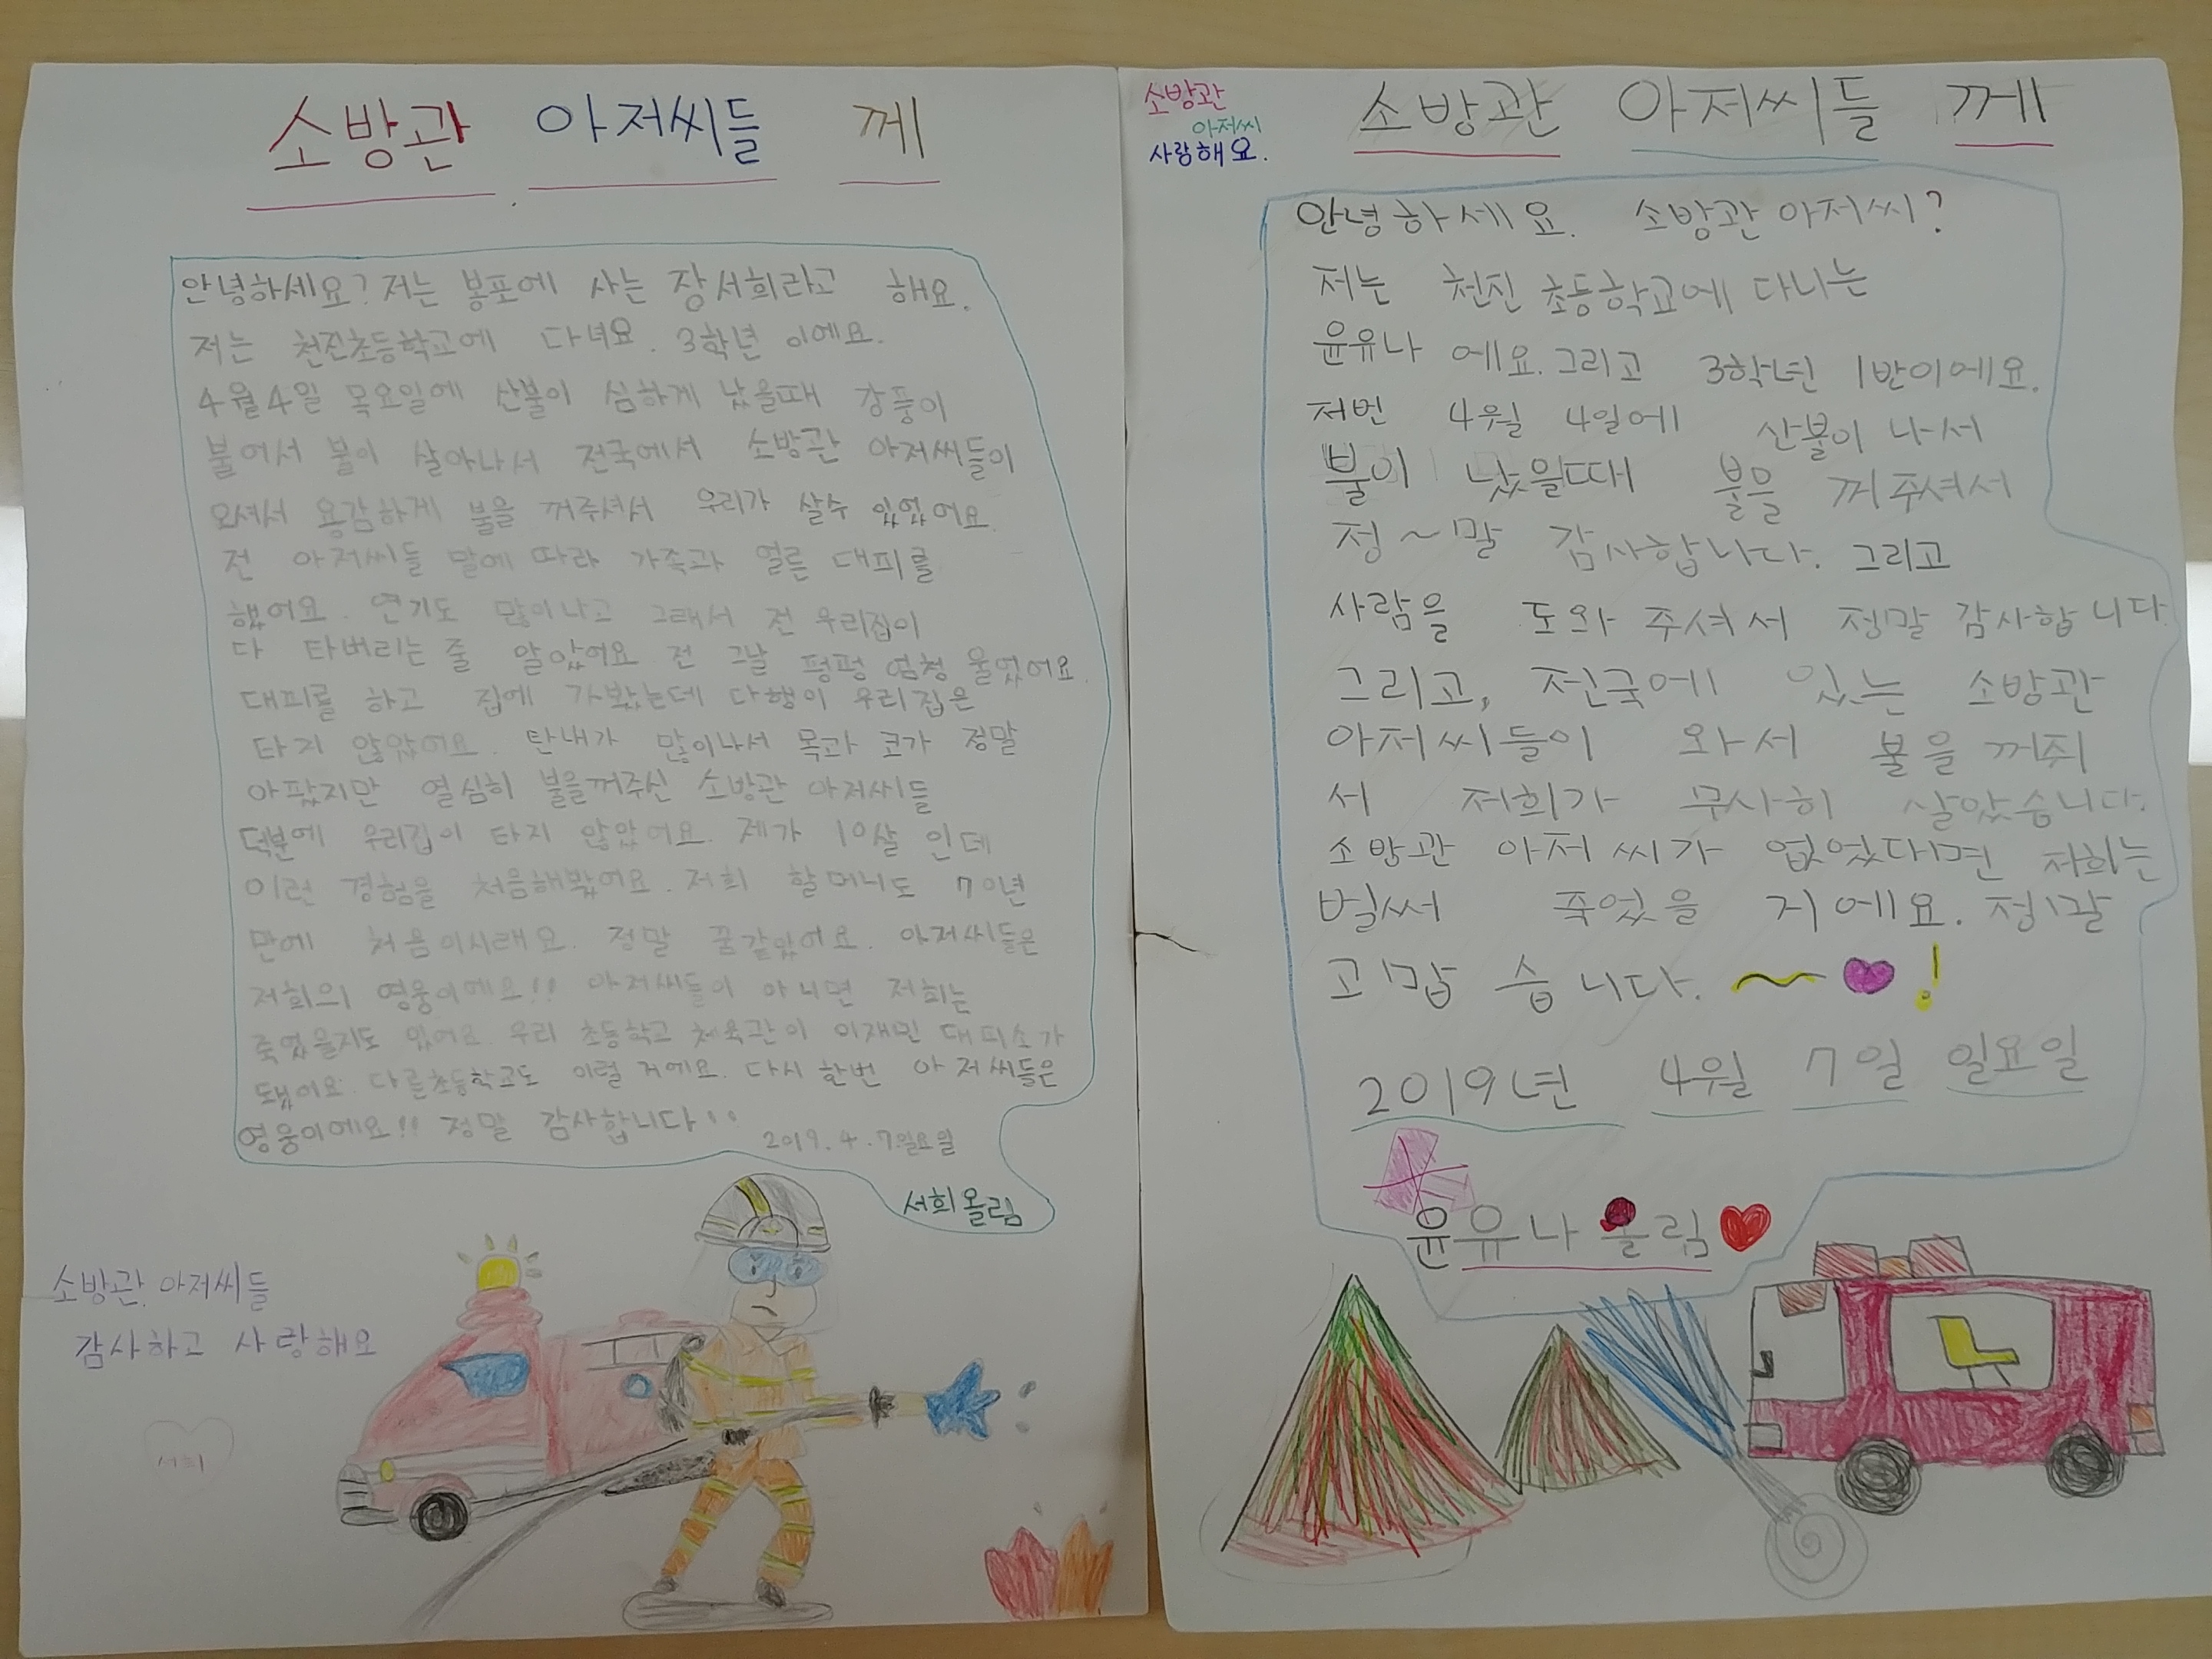 소방관 아저씨들 께
안녕하세요? 저는 봉포에 사는 장서희라고 해요.
저는 천진초등학교에 다녀요. 3학년 이에요.
4월4일 목요일에 산불이 심하게 났을때 강풍이
불어서 불이 살아나서 전국에서 소방관 아저씨들이
오셔서 용감하게 불을 꺼주셔서 우리가 살수 있었어요.
전 아저씨들 말에 따라 가족과 얼른 대피를
했어요. 연기도 많이나고 그래서 전 우리집이
다 타버리는 줄 알았어요 전 그날 펑펑 엄청 울었어요.
대피를 하고 집에 가봤는데 다행이 우리집은
타지 않았어요. 탄내가 많이나서 목과 코가 정말
아팠지만 열심히 불을꺼주신 소방관 아저씨들
덕분에 우리집이 타지 않았어요. 제가 10살 인데
이런 경험을 처음해봤어요. 저희 할머니도 70년
만에 처음이시래요. 정말 꿈같았어요. 아저씨들은
저희의 영웅이에요!! 아저씨들이 아니면 저희는
죽었을지도 있어요. 우리 초등학교 체육관이 이재민 대피소가
됐어요. 다른초등학교도 이럴 거에요. 다시 한번 아저씨들은
영웅이에요!! 정말 감사합니다!!
2019.4.7.일요일
서희올림
소방관 아저씨들
감사하고 사랑해요
서희
소방관
아저씨
사랑해요.
소방관 아저씨들 께
안녕하세요. 소방관 아저씨?
저는 천진 초등학교에 다니는
윤유나 에요. 그리고 3학년 1반이에요.
저번 4월 4일에 산불이 나서
불이 났을때 불을 꺼주셔서
정~말 감사합니다. 그리고
사람을 도와 주셔서 정말 감사합니다
그리고, 전국에 있는 소방관
아저씨들이 와서 불을 꺼줘
서 저희가 무사히 살았습니다.
소방관 아저씨가 없었다면 저희는
벌써 죽었을 거에요. 정말
고맙습니다. ~♥!
2019년 4월 7일 일요일
윤유나 올림♥